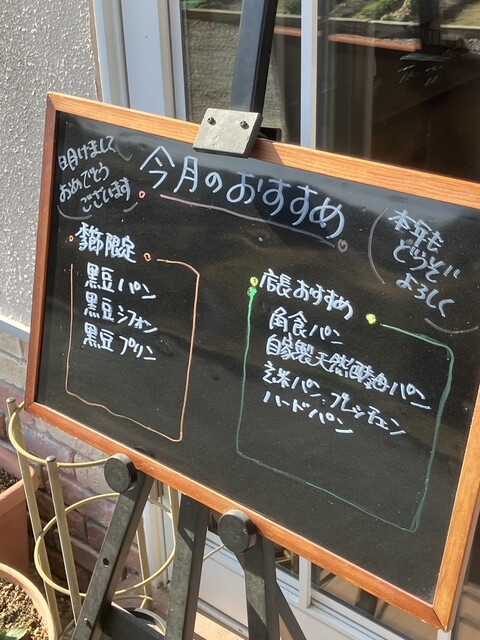 明けまして
おめでとう
ございます
今月のおすすめ
本年も
どうぞ
よろしく
季節限定
黒豆パン
黒豆シフォン
黒豆プリン
店長おすすめ
角食パン
自家製天然酵母パン
玄米パン・ブレッチェン
ハードパン